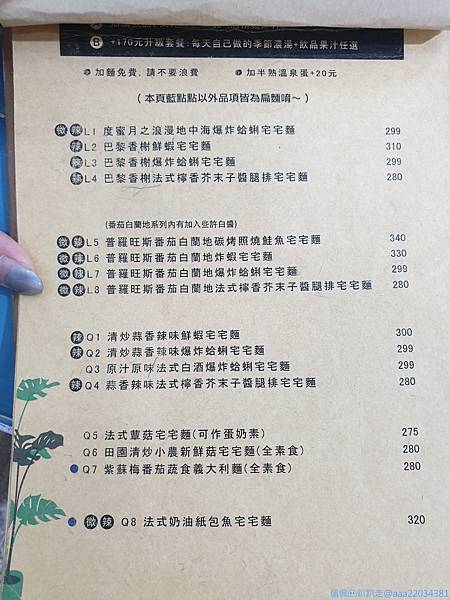 B +170元升級套餐:每天自己做的季節濃湯+飲品果汁任選
加麵免費,請不要浪費 加半熟溫泉蛋+20元
(本頁藍點點以外品項皆為扁麵唷~)
微辣 L1 度蜜月之浪漫地中海爆炸蛤蜊宅宅麵 299
辣 L2 巴黎香榭鮮蝦宅宅麵 310
L3 巴黎香榭爆炸蛤蜊宅宅麵 299
L4 巴黎香榭法式檸香芥末子醬腿排宅宅麵 280
(番茄白蘭地系列內有加入些許白醬)
微辣 L5 普羅旺斯番茄白蘭地碳烤照燒鮭魚宅宅麵 340
微辣 L6 普羅旺斯番茄白蘭地炸蝦宅宅麵 330
微辣 L7 普羅旺斯番茄白蘭地爆炸蛤蜊宅宅麵 299
微辣 L8 普羅旺斯番茄白蘭地法式檸香芥末子醬腿排宅宅麵 280
辣 Q1 清炒蒜香辣味鮮蝦宅宅麵 300
辣 Q2 清炒蒜香辣味爆炸蛤蜊宅宅麵 299
Q3 原汁原味法式白酒爆炸蛤蜊宅宅麵 299
辣 Q4 蒜香辣味法式檸香芥末子醬腿排宅宅麵 280
Q5 法式蕈菇宅宅麵(可作蛋奶素) 275
Q6 田園清炒小農新鮮菇宅宅麵(全素食) 280
Q7 紫蘇梅番茄蔬食義大利麵(全素食) 280
微辣 Q8 法式奶油紙包魚宅宅麵 320
@aaa22034381